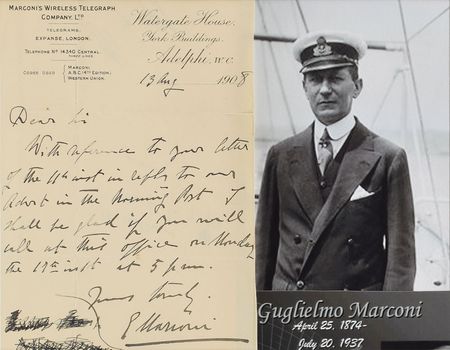 MARCONI'S WIRELESS TELEGRAPH
COMPANY, LTD
TELEGRAMS.
EXPANSE, LONDON.
TELEPHONE Nº 14340 CENTRAL
THREE LINES
CODES USED
MARCONI.
A.B.C. (4TH EDITION).
WESTERN UNION.
Watergate House,
York Buildings,
Adelphi, W.C.
13 Aug 1908
Dear Sir
With reference to your letter
of the 11th inst in reply to our
Advt in the Morning Post I
shall be glad if you will
call at this office on Monday
the 17th inst at 5 pm.
Yours truly,
G Marconi
Guglielmo Marconi
April 25, 1874-
July 20, 1937